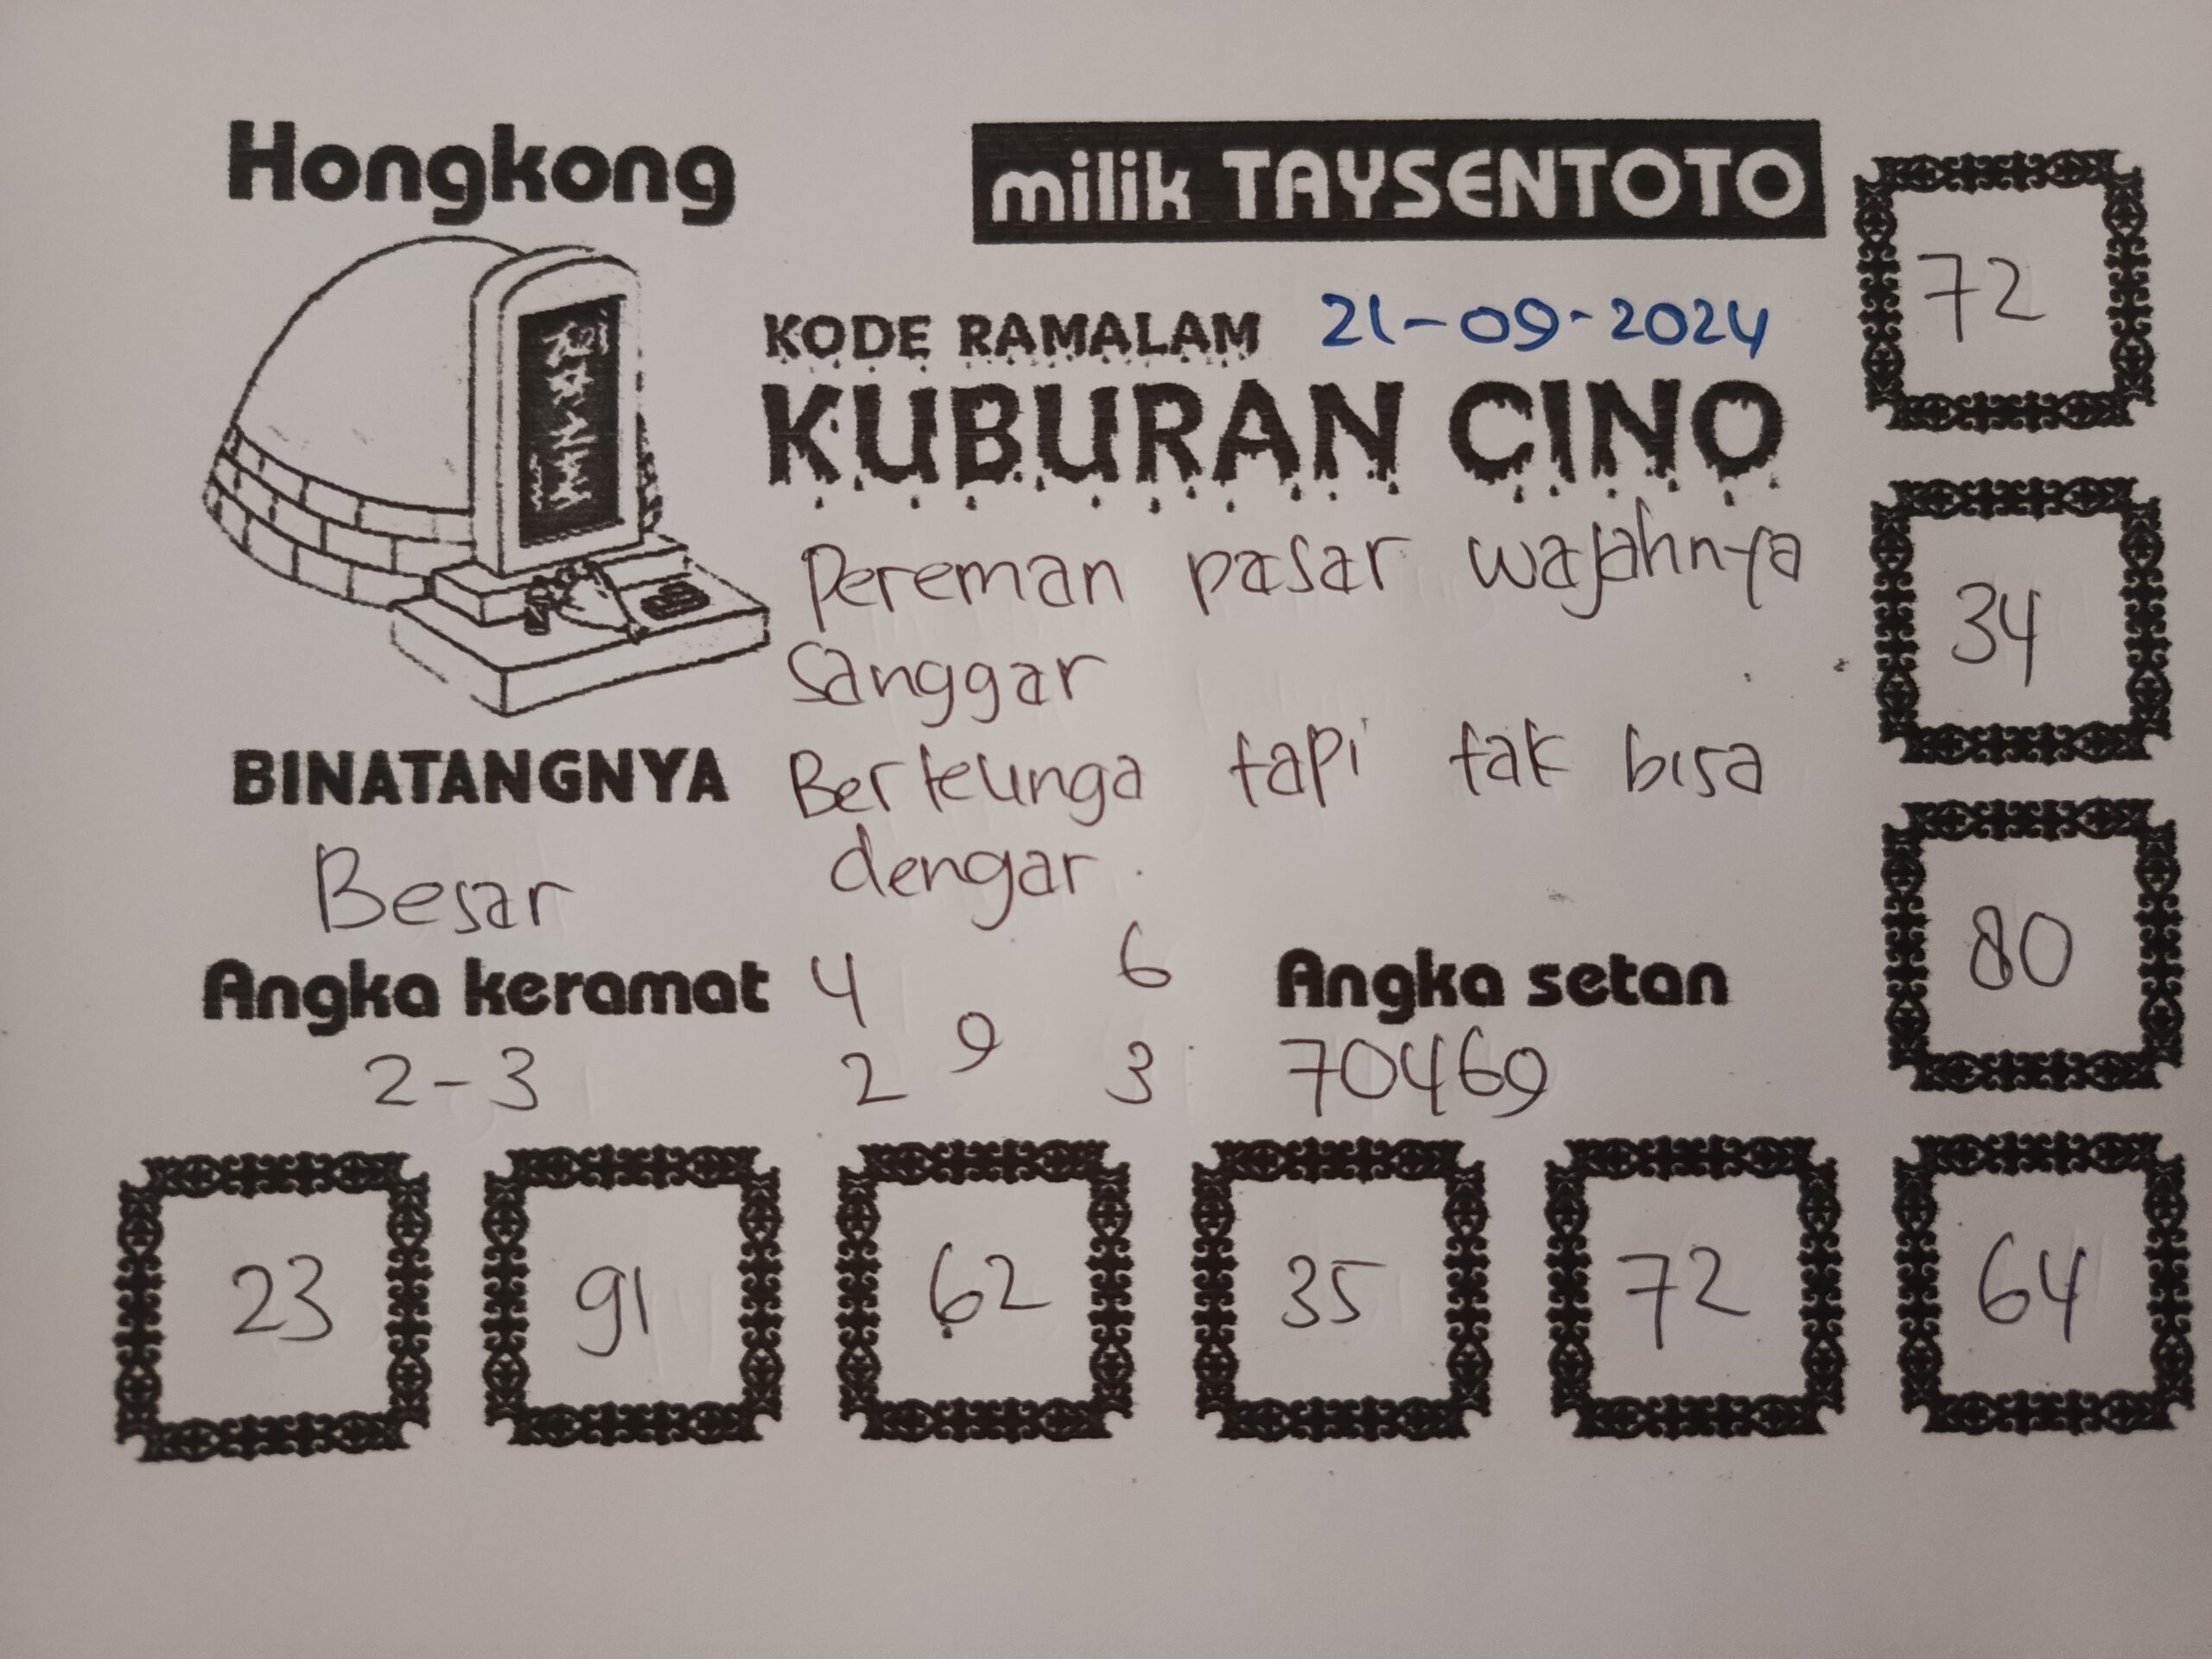 Hongkong
milik TAYSENTOTO
KODE RAMALAM 21-09-2024
KUBURAN CINO
Pereman pasar wajahnya
Sanggar
Berteunga tapi tak bisa
dengar.
BINATANGNYA
Besar
Angka keramat
2-3
4 6
9
2 3
Angka setan
70469
72
34
80
23 91 62 35 72 64